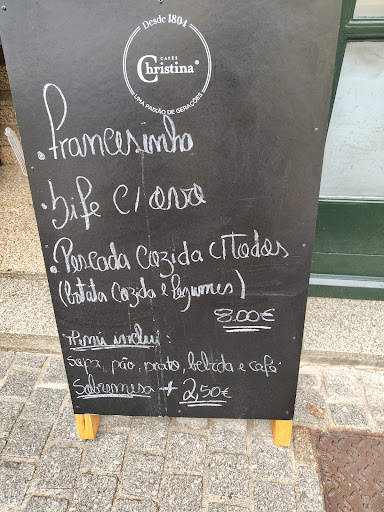 Desde 1804
CAFÉS
Christina®
UMA PAIXÃO DE GERAÇÕES
. francesinha
. bife c/ ovo
. Pescada cozida c/ todos
(batata cozida e legumes)
8.00€
Menú inclui:
sopa, pão, prato, bebida e café
Sobremesa + 2,50€